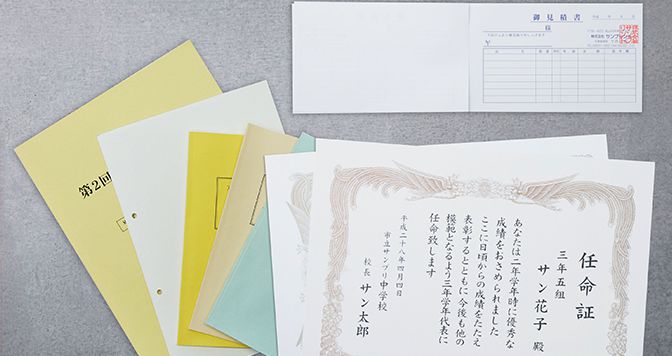 御見積書
様
株式会社 サンプリント
¥
第2回
任命証
三年五組
サン花子 殿
あなたは二学年時に優秀な
成績をおさめられました
ここに日頃からの成績をたたえ
表彰するとともに今後も他の
模範となるよう三学年代表に
任命致します
平成二十八年四月四日
市立サンプリ中学校
校長 サン太郎